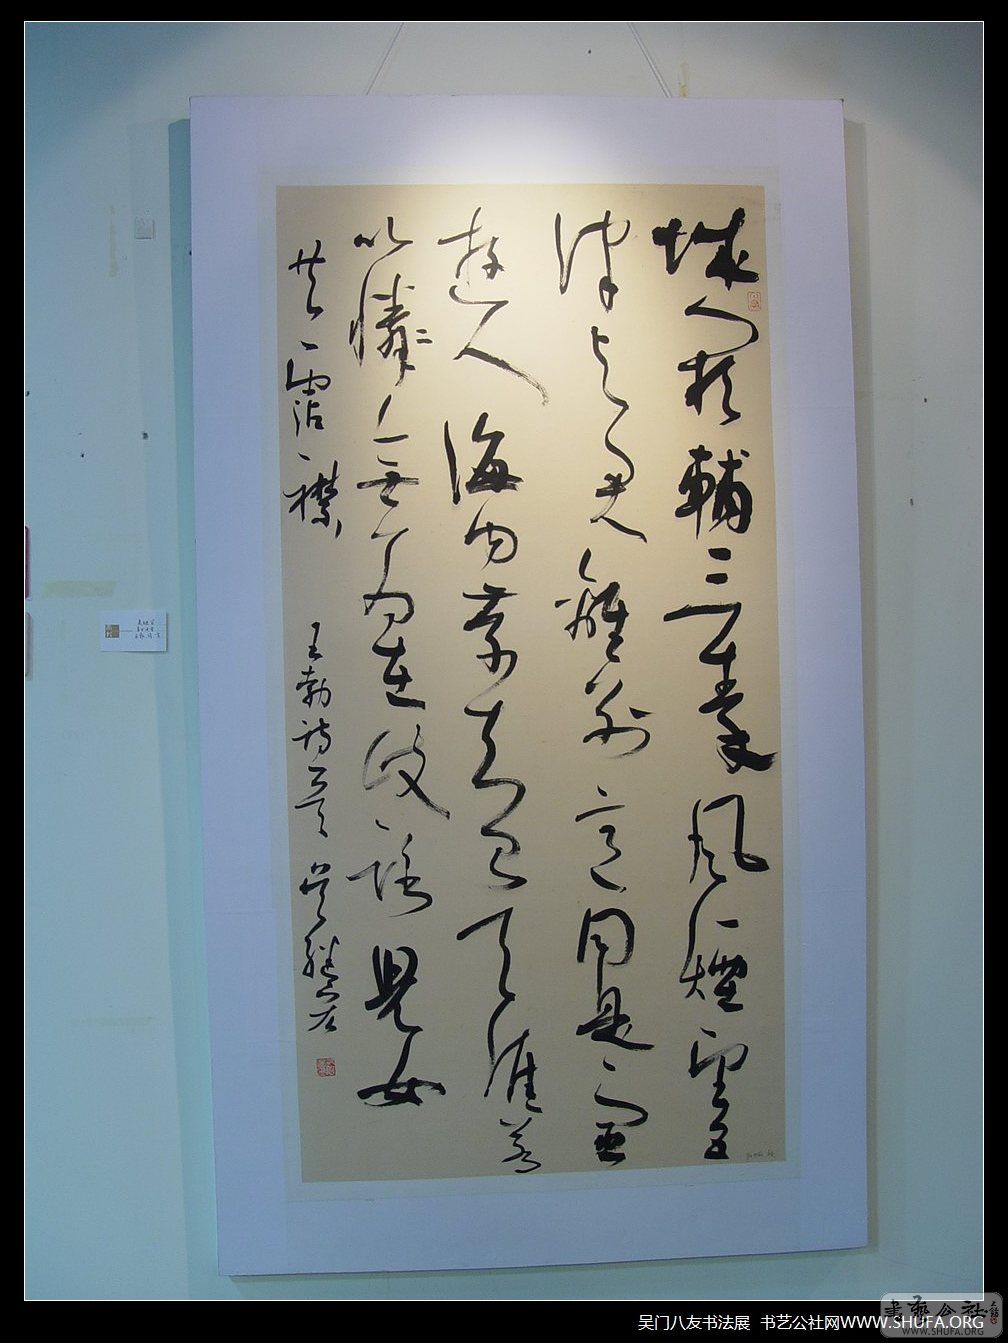 城闕輔三秦風煙望五
津与君離別意同是宦
遊人海内存知己天涯若
比隣無为在歧路兒女
共霑襟 王勃诗一首
吴门八友书法展 书艺公社网WWW.SHUFA.ORG
書藝公社
WWW.SHUFA.ORG